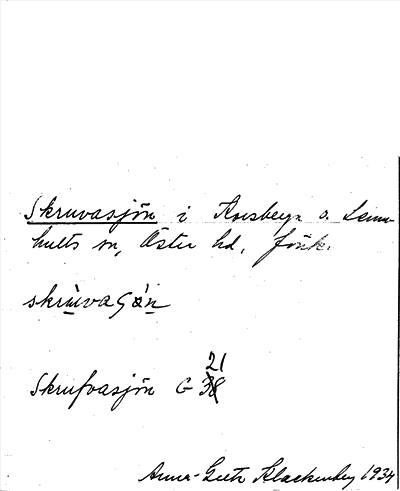 Skruvasjön i Korsberga o. Lemn-
hults sn, Östra hd, Jönk.
skrùvaʃǿn
Skrufvasjön G 38 21
Anna-Greta Klackenberg 1934